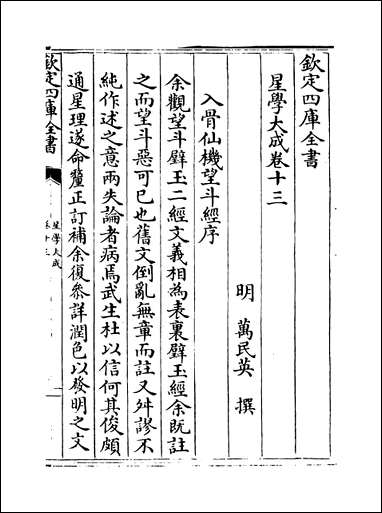 欽定四庫全書
星學大成卷十三
明 萬民英 撰
入骨仙機望斗經序
余觀望斗璧玉二經文義相為表裏璧玉經余既註
之而望斗惡可已也舊文倒亂無章而註又舛謬不
純作述之意兩失論者病焉武生杜以信何其俊頗
通星理遂命釐正訂補余復叅詳潤色以發明之文
欽定四庫全書
星學大成
卷十三
一